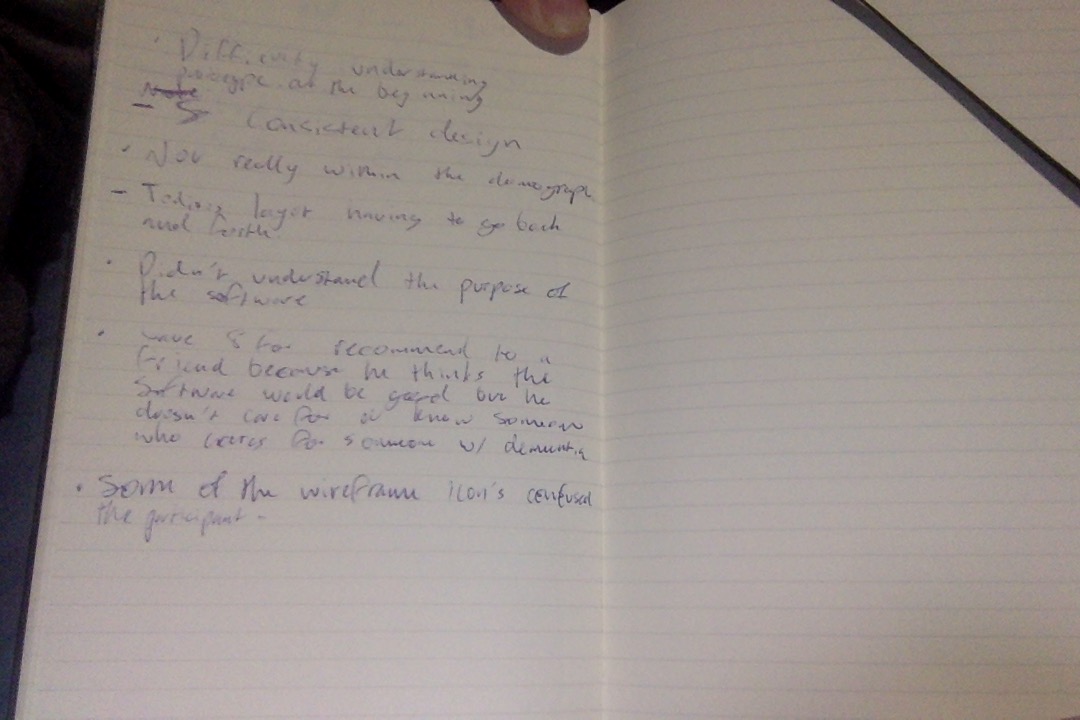 • Difficulty understanding
prototype at the beginning
- 5 consistent design
• Not really within the demograph
- Tedious having to go back
and forth
• Didn't understand the purpose of
the software
• Gave 8 for recommend to a
friend because he thinks the
software would be good but he
doesn't care for or know someone
who cares for someone w/ dementia
• Some of the wireframe icon's confused
the participant.